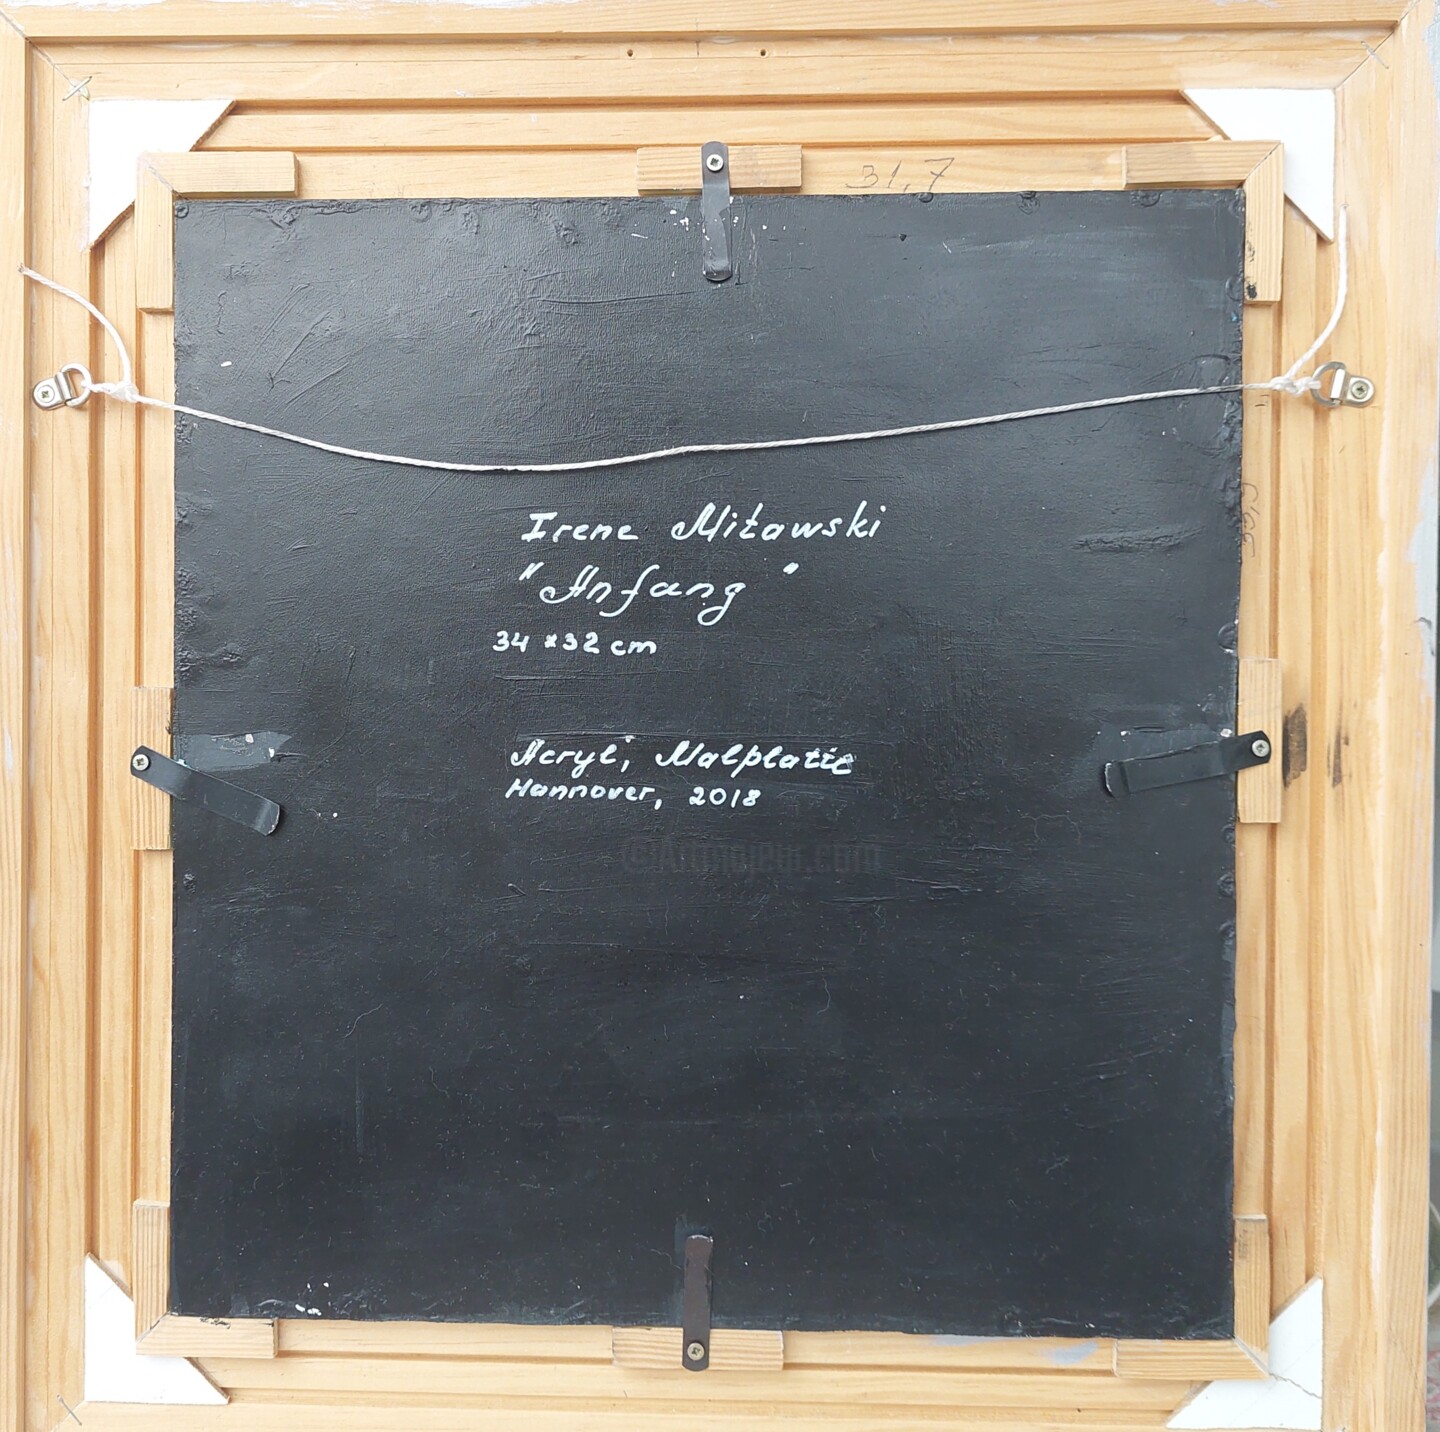 31,7
Irene Mitawski
"Anfang"
34 x 32 cm
Acryl, Malplatte
Hannover, 2018
©Artmajeur.com